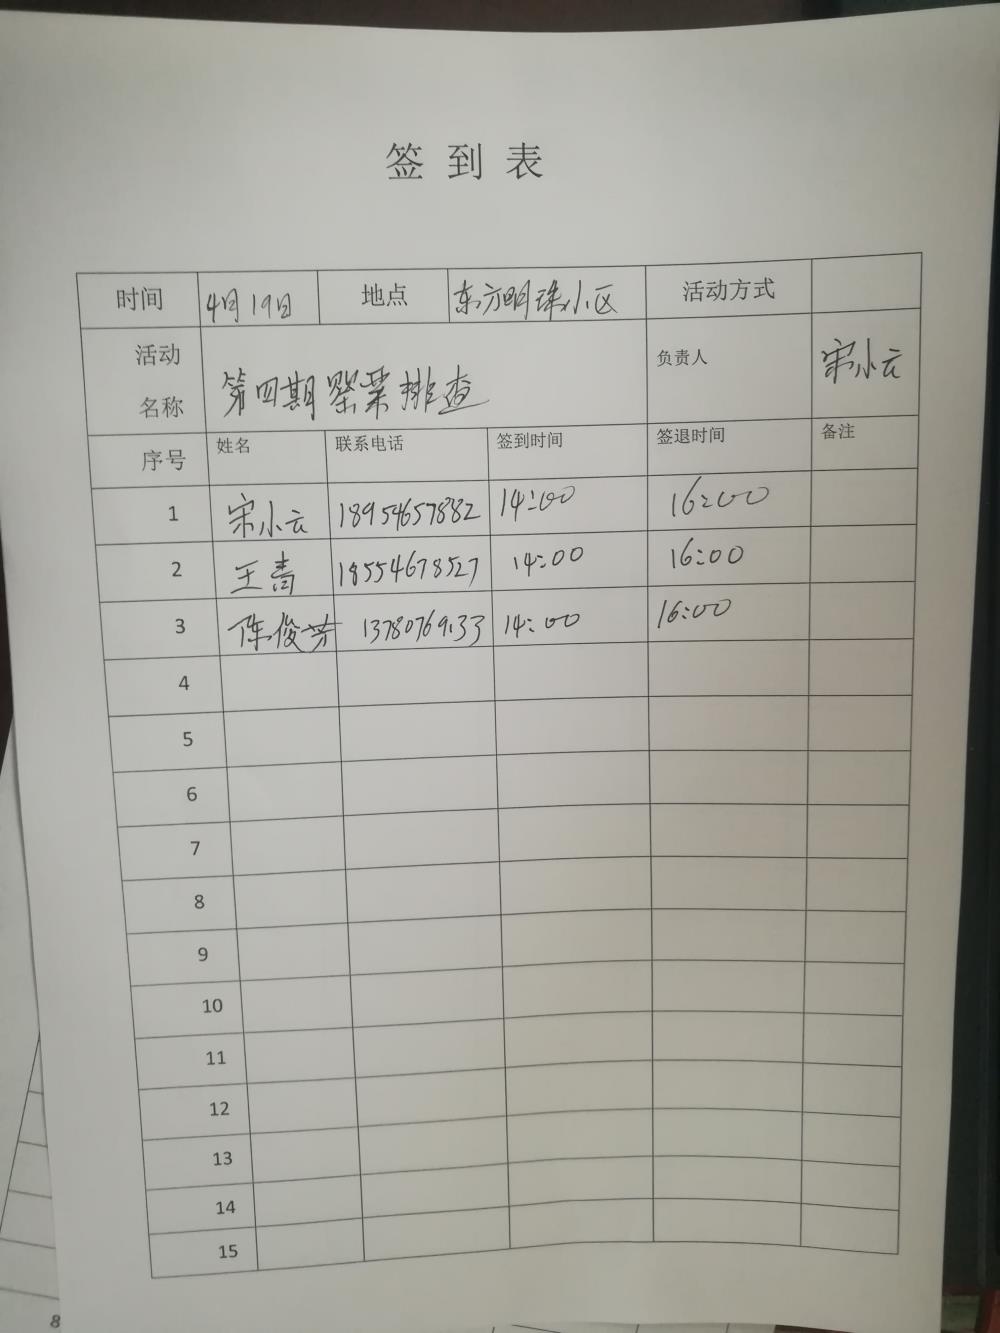 签到表
时间 4月19日 地点 东方明珠小区 活动方式
活动名称 第四期罂粟排查 负责人 宋小云
序号 姓名 联系电话 签到时间 签退时间 备注
1 宋小云 18954657882 14:00 16:00
2 王青 18554678527 14:00 16:00
3 陈俊芳 13780769133 14:00 16:00
4
5
6
7
8
9
10
11
12
13
14
15
8